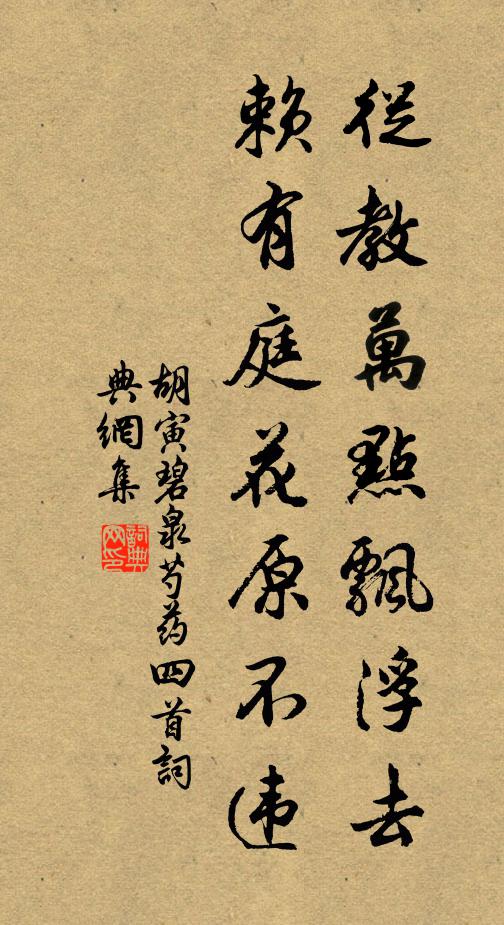 從教萬點飄浮去
賴有庭花原不违
胡寅碧泉芍药四首詞
典網集
詞典网印